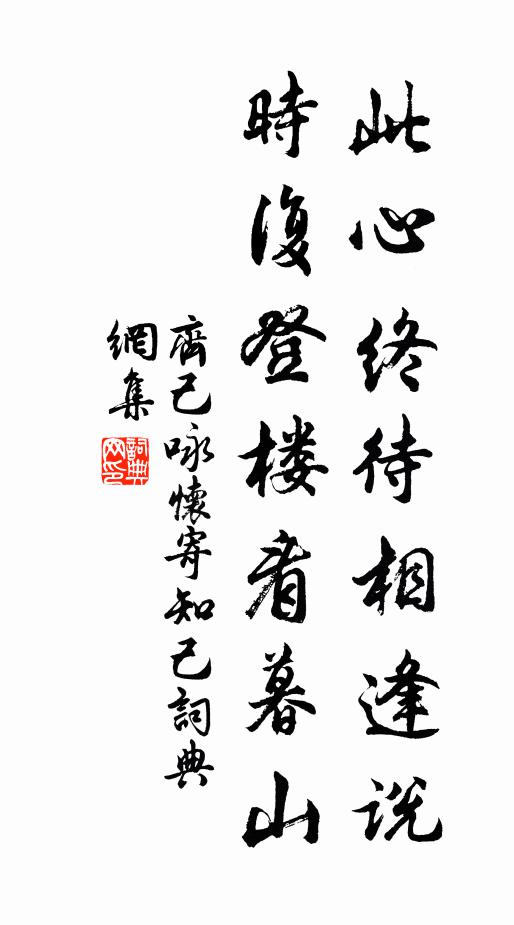 此心终待相逢说
時復登楼看暮山
齊己咏懷寄知己詞典
網集
詞典网印